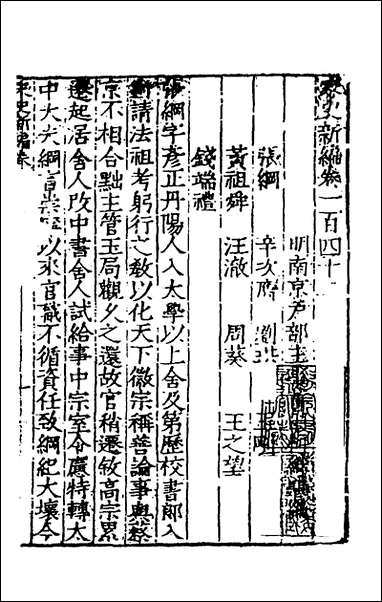 宋史新編卷一百四十
明南京户部主
張綱　辛次膺　劉珙
黃祖舜　汪澈　周葵　王之望
錢端禮
張綱字彥正丹陽人入大學以上舍及第歷校書郎入
對請法祖考躬行之教以化天下徽宗稱善論事與蔡
京不相合黜主管玉局觀久之還故官稍遷敏高宗累
遷起居舍人改中書舍人試給事中宗至令應特轉太
中大夫綱言
以來官職不循資任致綱紀大壞今
宋史新編卷